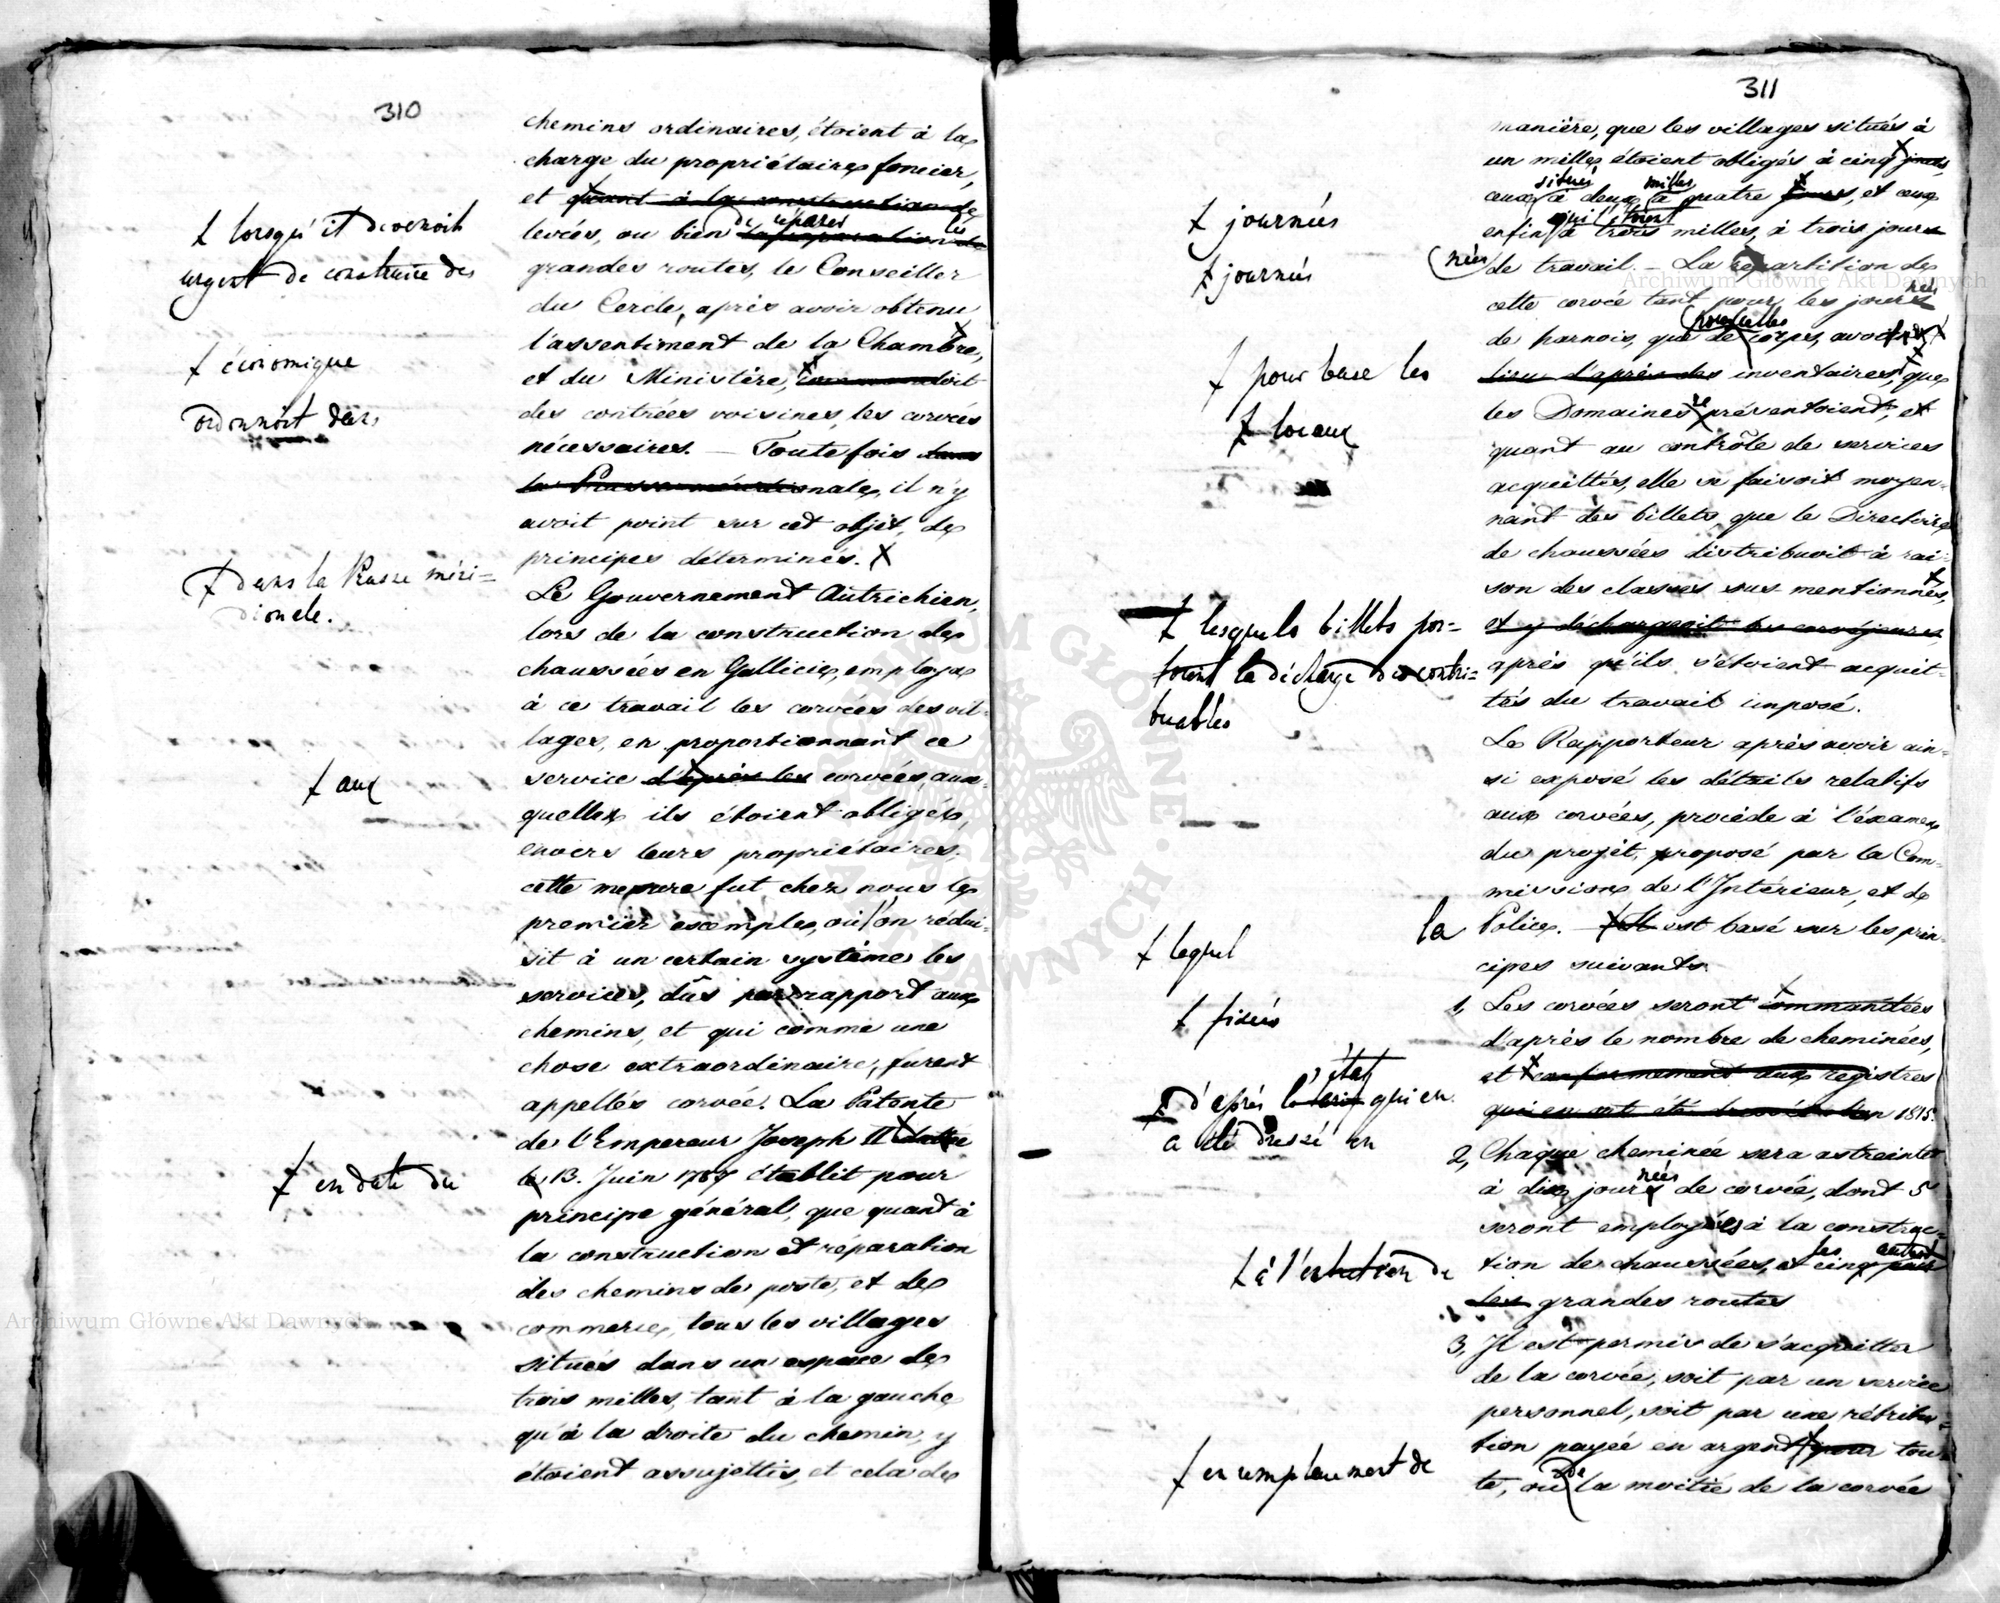 310
chemins ordinaires, étoient à la
charge du propriétaire foncier,
et quant à la construction de
levées, ou bien de réparer les
grandes routes, le Conseiller
du Cercle, après avoir obtenu
l'assentiment de la Chambre,
et du Ministère, commandoit
des contrées voisines, les corvées
nécessaires. — Toute fois dans
la Prusse méridionale, il n'y
avoit point sur cet objèt, de
principes déterminés. X
Le Gouvernement Autrichien,
lors de la construction de
chaussées en Gallicie, employa
à ce travail les corvées des vil-
lages, en proportionnant ce
service d'après les corvées, aux
quelles ils étoient obligés,
envers leurs propriétaires.
cette mesure fut chez nous le
premier exemple, où l'on rédui-
sit à un certain système les
services, dûs par rapport aux
chemins, et qui comme une
chose extraordinaire, furent
appellés corvée. La Patente
de l'Empereur Joseph II datée
le 13. Juin 1787 établit pour
principe général, que quant à
la construction et réparation
des chemins de poste, et de
commerce, tous les villages
situés dans un espace de
trois milles, tant à la gauche
qu'à la droite du chemin, y
étoient assujettis, et cela de
lorsqu'il devenoit
urgent de construire des
économique
ordonnoit des
dans la Prusse méri=
dionale.
aux
en date du
311
manière, que les villages situés à
un mille étoient obligés à cinq jours,
ceux situés à deux milles à quatre jours, et ceux
enfin qui étoient à trois milles, à trois jour
nées de travail. — La repartition de
cette corvée tant pour les journées
de harnois, que pour celles de corps, avoit
lieu d'après des inventaires, que
les Domaines présentoient, et
quant au contrôle de services
acquittés, elle se faisoit moyen-
nant des billets, que le Directoire
de chaussées distribuoit à rai-
son des classes sus mentionnés,
et y déchargeoit les corvéjeures,
après qu'ils s'étoient acquit-
tés du travail imposé.
Le Rapporteur après avoir ain-
si exposé les détails relatifs
aux corvées, procède à l'éxamen
du projèt, proposé par la Com-
mission de l'Intérieur, et de
la Police. — Il est basé sur les prin-
cipes suivants.
1, Les corvées seront commandées
d'après le nombre de cheminées,
et conformement aux registres
qui en ont été l'an 1815.
2, Chaque cheminée sera astreinte
à dix journées de corvée, dont 5
seront employées à la construc-
tion de chaussées, et les cinq autres pour
les grandes routes
3, Il est permis de s'acquitter
de la corvée, soit par un service
personnel, soit par une rétribu-
tion payée en argent pour tou-
te, ou de la moitié de la corvée
journées
journées
pour base les
locaux
lesquels billets por=
toient la décharge des contri=
buables
lequel
fixées
d'après l'état qui en
a été dressé en
à l'entretien de
en remplacement de
Archiwum Główne Akt Dawnych
Archiwum Główne Akt Dawnych
ARCHIWUM GŁÓWNE AKT DAWNYCH